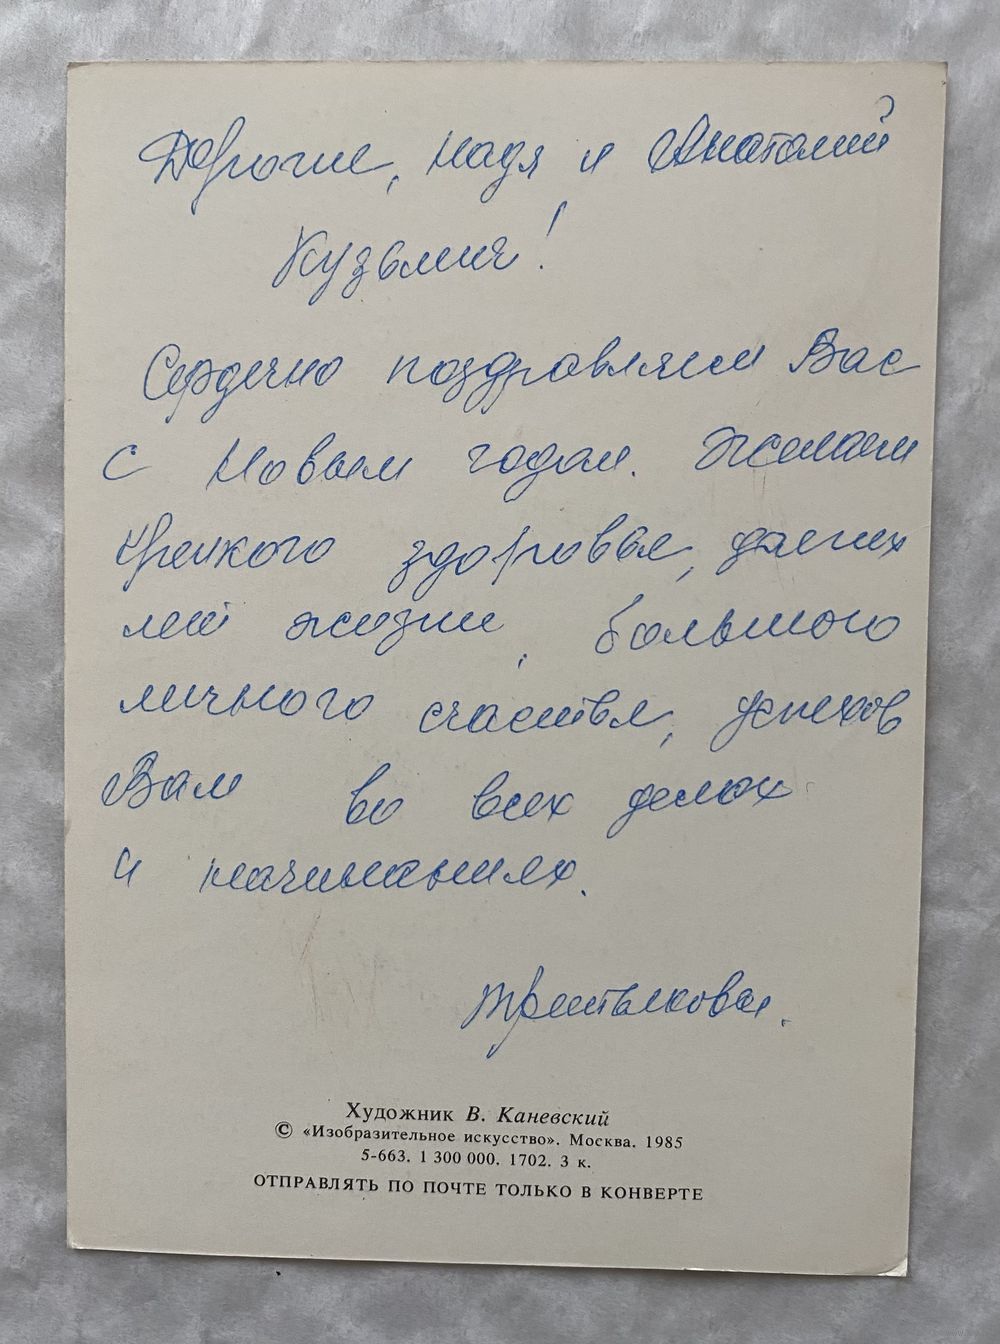 Дорогие, Надя и Анатолий
Кузьмич!
Сердечно поздравляем Вас
с Новым годом. Желаем
крепкого здоровья, долгих
лет жизни, большого
личного счастья, успехов
Вам во всех делах
и начинаниях.
Художник В. Каневский
© «Изобразительное искусство». Москва. 1985
5-663. 1 300 000. 1702. 3 к.
ОТПРАВЛЯТЬ ПО ПОЧТЕ ТОЛЬКО В КОНВЕРТЕ